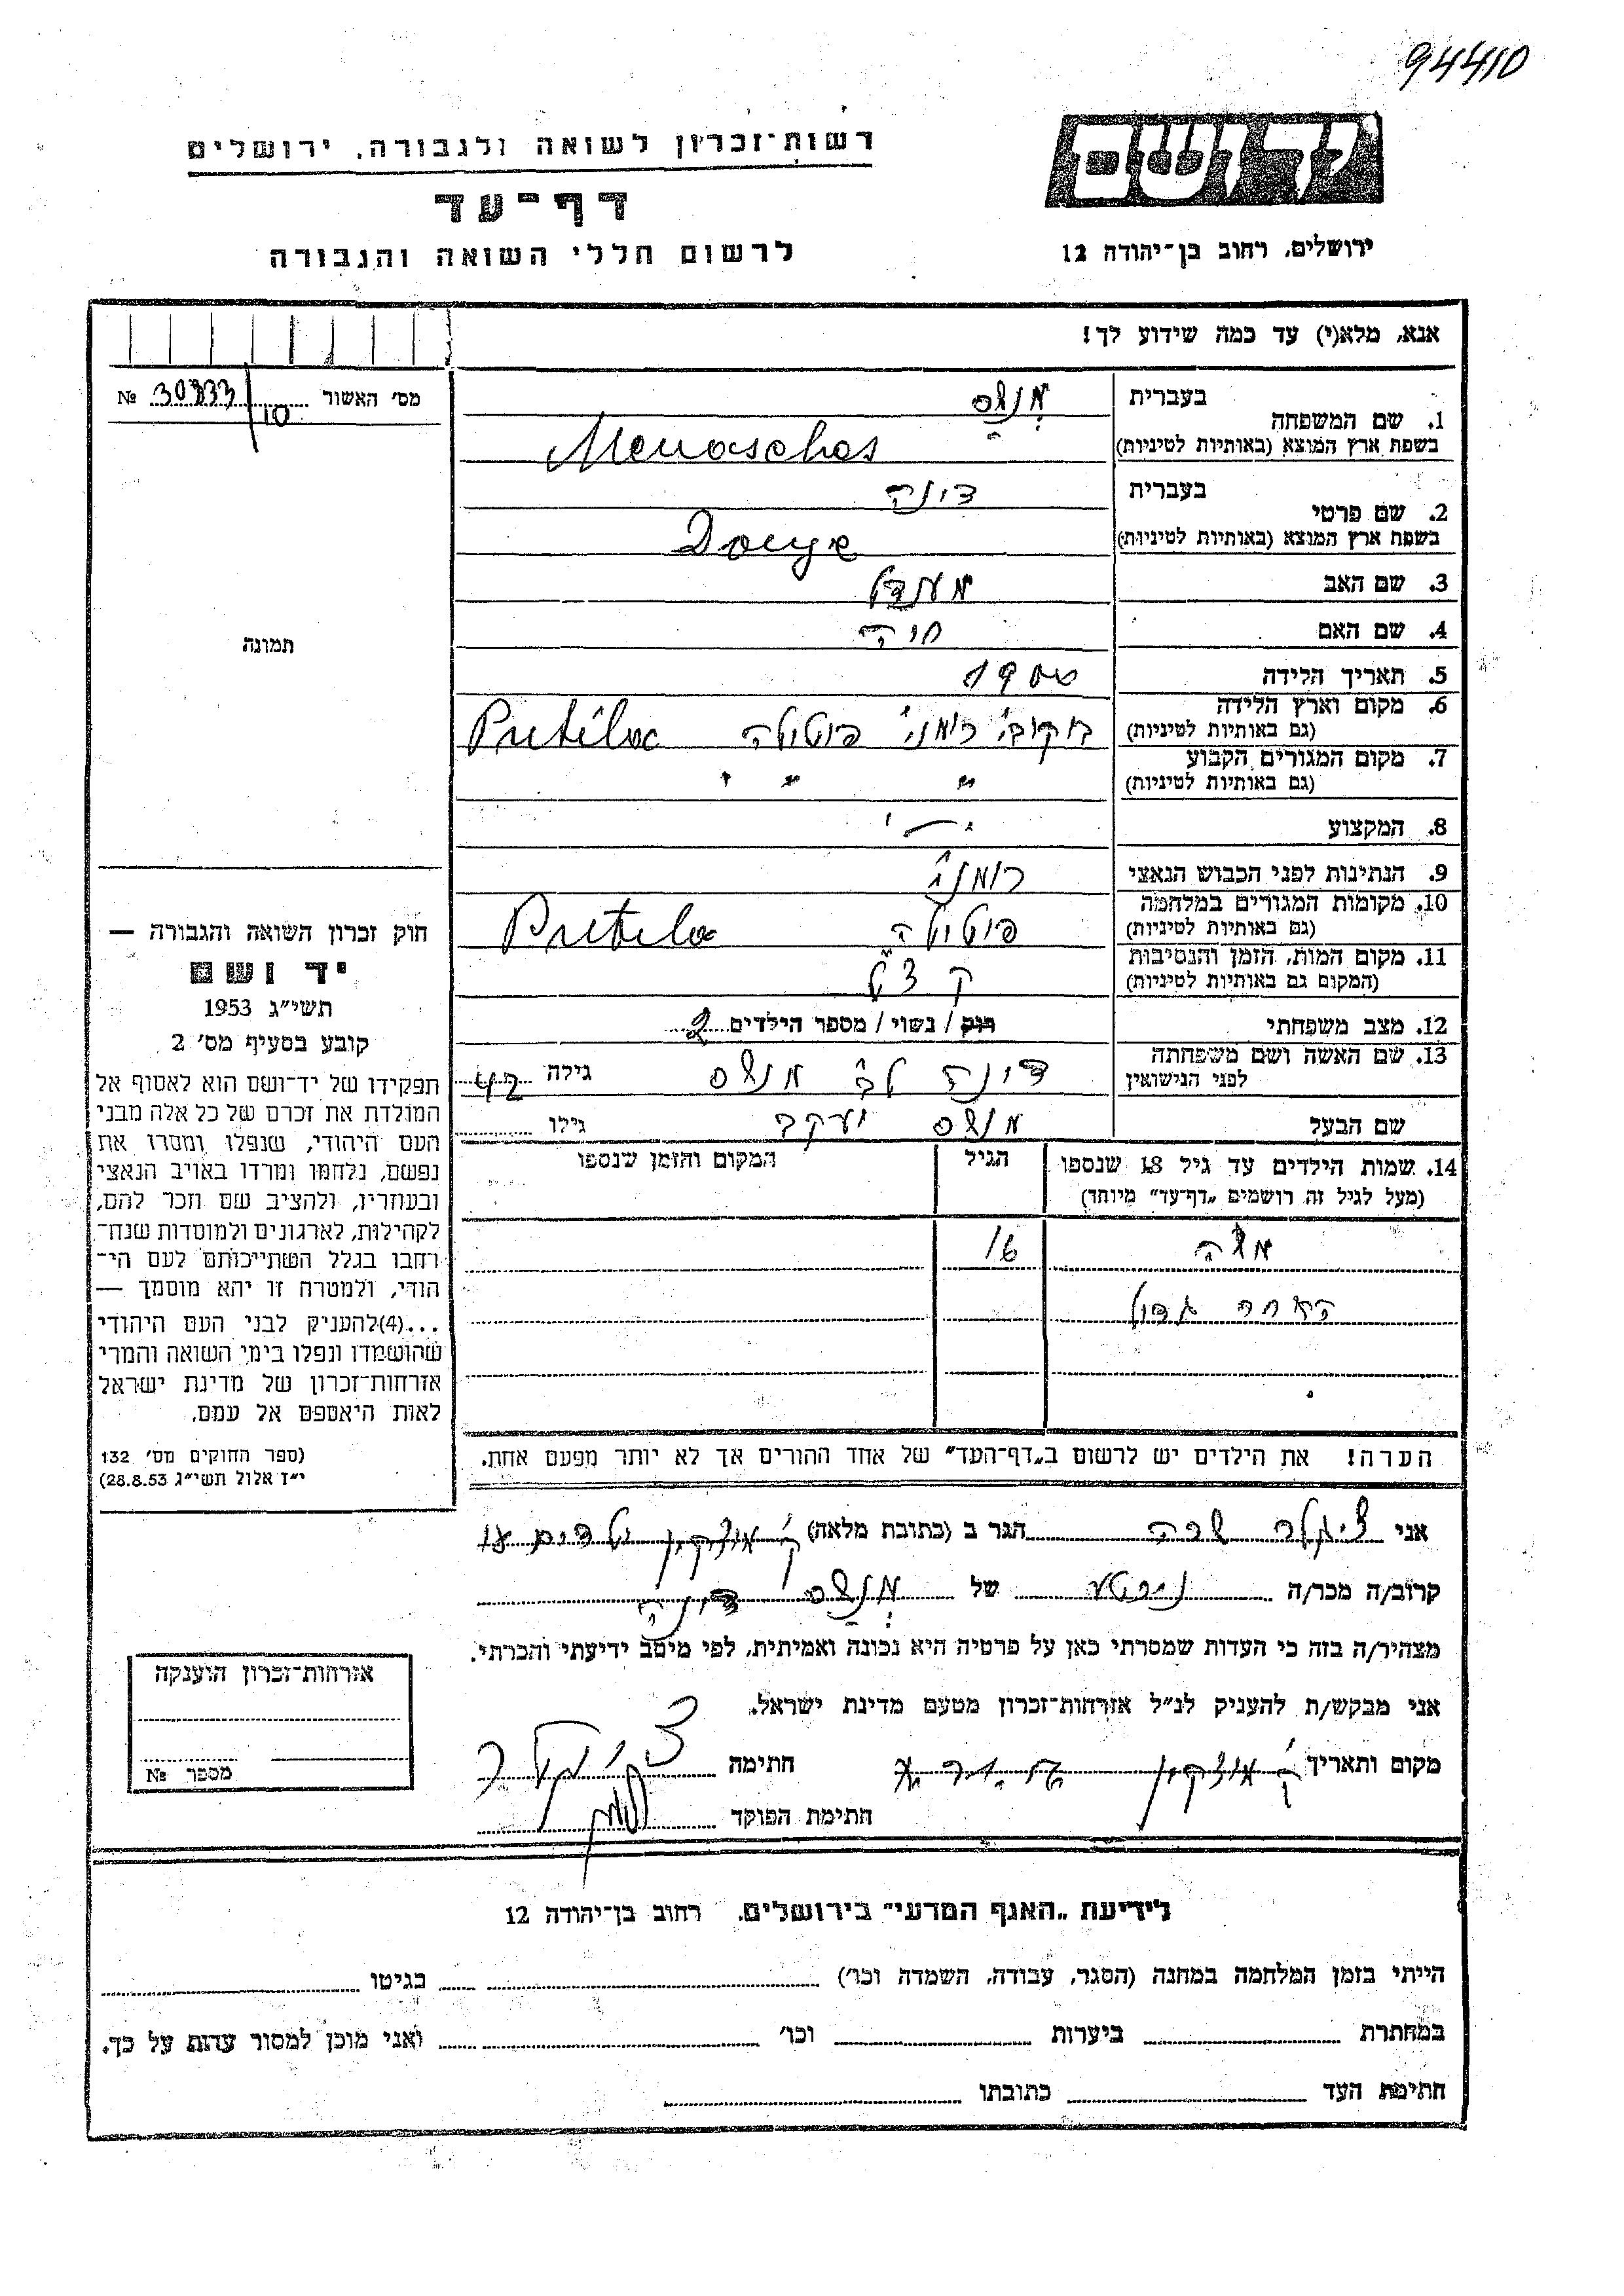 94410
ידושם
רשות־זכרון לשואה ולגבורה, ירושלים
דף־עד
לרשום חללי השואה והגבורה
ירושלים, רחוב בן־יהודה 12
אנא, מלא(י) עד כמה שידוע לך!
מס׳ האשור № 30333/10
תמונה
1. שם המשפחה
בעברית מנשס
בשפת ארץ המוצא (באותיות לטיניות) Menasches
2. שם פרטי
בעברית דוניה
בשפת ארץ המוצא (באותיות לטיניות)
3. שם האב מענדל
4. שם האם חיה
5. תאריך הלידה 1900
6. מקום וארץ הלידה
(גם באותיות לטיניות) בוקובי׳ רומני׳ פוטילה Putila
7. מקום המגורים הקבוע
(גם באותיות לטיניות) " " "
8. המקצוע
9. הנתינות לפני הכבוש הנאצי רומני׳
10. מקומות המגורים במלחמה
(גם באותיות לטיניות) פוטילה Putila
11. מקום המות, הזמן והנסיבות
(המקום גם באותיות לטיניות)
12. מצב משפחתי רוק / נשוי / מספר הילדים 2
13. שם האשה ושם משפחתה
לפני הנישואין מנשס גילה 42
שם הבעל מנשס יעקב גילו
14. שמות הילדים עד גיל 18 שנספו
(מעל לגיל זה רושמים „דף־עד״ מיוחד)
הגיל
המקום והזמן שנספו
16
הערה! את הילדים יש לרשום ב„דף־העד״ של אחד ההורים אך לא יותר מפעם אחת.
חוק זכרון השואה והגבורה —
יד ושם
תשי״ג 1953
קובע בסעיף מס׳ 2
תפקידו של יד־ושם הוא לאסוף אל
המולדת את זכרם של כל אלה מבני
העם היהודי, שנפלו ומסרו את
נפשם, נלחמו ומרדו באויב הנאצי
ובעוזריו, ולהציב שם וזכר להם,
לקהילות, לארגונים ולמוסדות שנח־
רחבו בגלל השתייכותם לעם הי־
הודי, ולמטרה זו יהא מוסמך —
...(4)להעניק לבני העם היהודי
שהושמדו ונפלו בימי השואה והמרי
אזרחות־זכרון של מדינת ישראל
לאות היאספם אל עמם.
(ספר החוקים מס׳ 132
י״ז אלול תשי״ג 28.8.53)
אני הגר ב (כתובת מלאה) ק׳ מוצקין
קרוב/ה מכר/ה של מנשס דוניה
מצהיר/ה בזה כי העדות שמסרתי כאן על פרטיה היא נכונה ואמיתית, לפי מיטב ידיעתי והכרתי.
אני מבקש/ת להעניק לנ״ל אזרחות־זכרון מטעם מדינת ישראל.
מקום ותאריך ק׳ מוצקין חתימה
חתימת הפוקד
אזרחות־זכרון הוענקה
מספר №
לידיעת „האגף המדעי״ בירושלים. רחוב בן־יהודה 12
הייתי בזמן המלחמה במחנה (הסגר, עבודה, השמדה וכו׳) בגיטו
במחתרת ביערות וכו׳ ואני מוכן למסור עדות על כך.
חתימת העד כתובתו